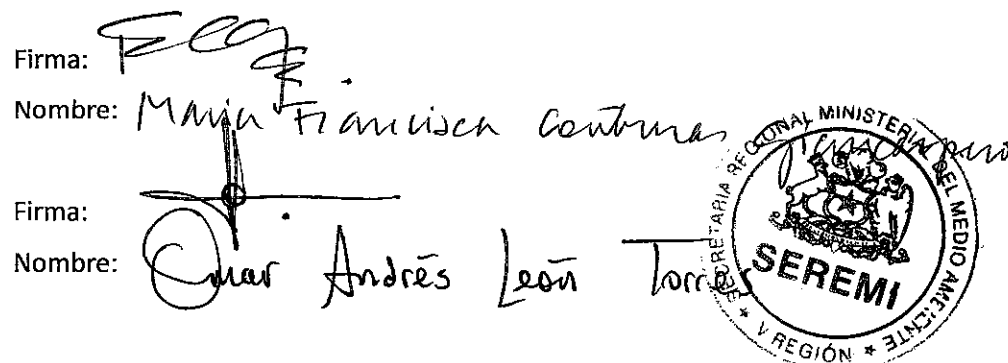 Firma:
Nombre: Maria Francisca Contreras
Firma:
Nombre: Omar Andrés León Torres
SECRETARIA REGIONAL MINISTERIAL DEL MEDIO AMBIENTE
SEREMI
* V REGIÓN *